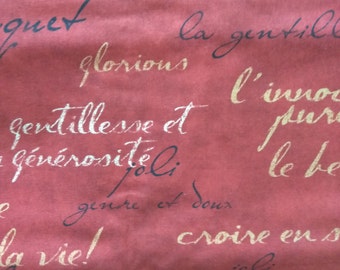 quet
la gentill
glorious
l'innoc
pure
gentillesse et
générosité
joli
le be
genre et doux
croire en s
la vie!
joli